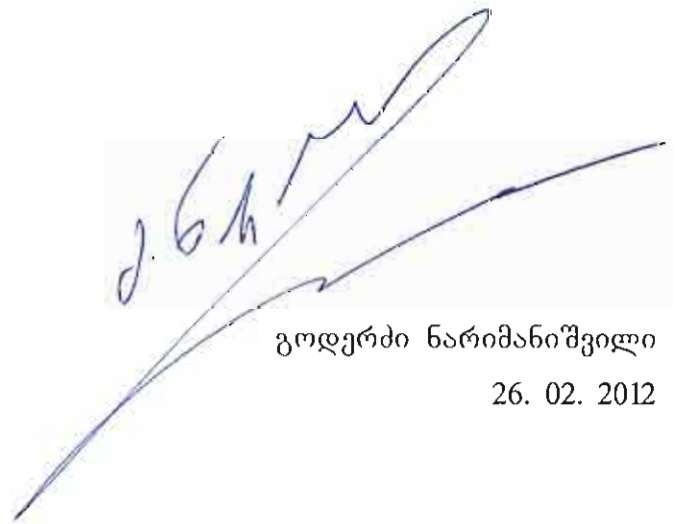 გოდერძი ნარიმანიშვილი
26. 02. 2012